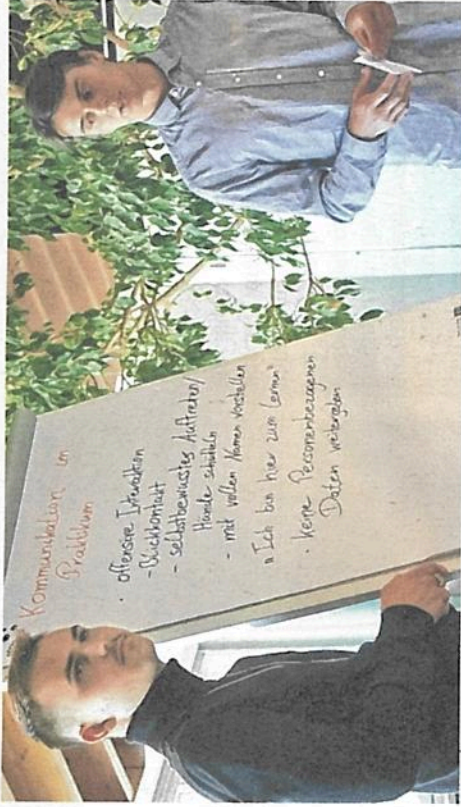 Kommunikation im
Praktikum
• offensive Interaktion
- Blickkontakt
- selbstbewusstes Auftreten/
Hände schütteln
- mit vollen Namen vorstellen
" Ich bin hier zum Lernen"
• Keine Personenbezogenen
Daten weitergeben